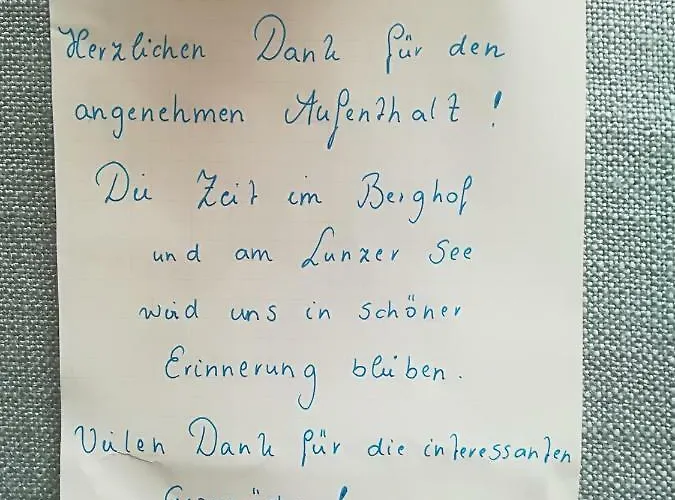 Herzlichen Dank für den
angenehmen Aufenthalt!
Die Zeit im Berghof
und am Lunzer See
wird uns in schöner
Erinnerung bleiben.
Vielen Dank für die interessanten